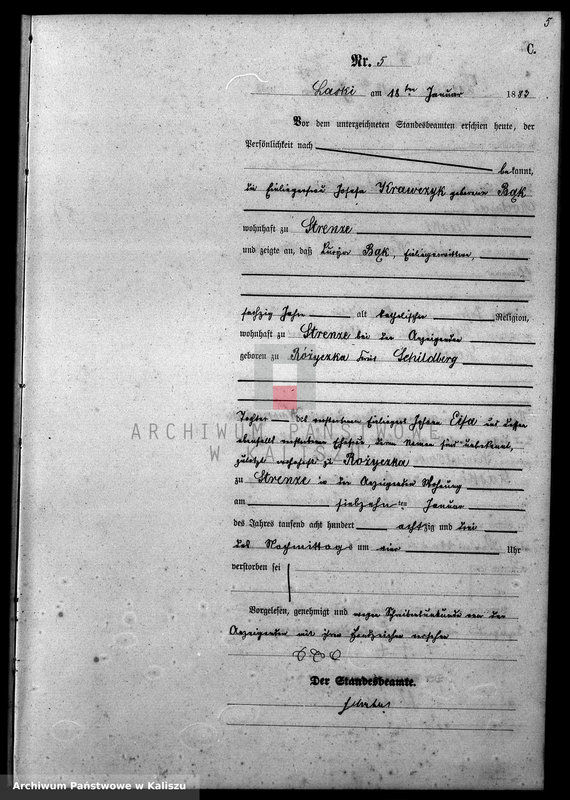 5
C.
Nr. 5
Laski am 18ten Januar 1883
Vor dem unterzeichneten Standesbeamten erschien heute, der
Persönlichkeit nach
bekannt,
die Einliegerfrau Josefa Krawczyk geborene Bąk
wohnhaft zu Strenze
und zeigte an, daß Bąk, Einliegerwittwe,
sechzig Jahr alt katholischer Religion,
wohnhaft zu Strenze bei der Anzeigenden
geboren zu Różyczka Kreis Schildberg
Tochter des verstorbenen Einliegers Johann und dessen
ebenfalls verstorbenen Ehefrau, deren Namen sind unbekannt,
zuletzt wohnhaft zu Różyczka
zu Strenze in der Anzeigenden Wohnung
am siebzehnten Januar
des Jahres tausend acht hundert achtzig und drei
des Nachmittags um vier Uhr
verstorben sei
Vorgelesen, genehmigt und wegen von der
Anzeigenden mit ihrem Handzeichen versehen
Der Standesbeamte.
ARCHIWUM PAŃSTWOWE
W KALISZU
Archiwum Państwowe w Kaliszu